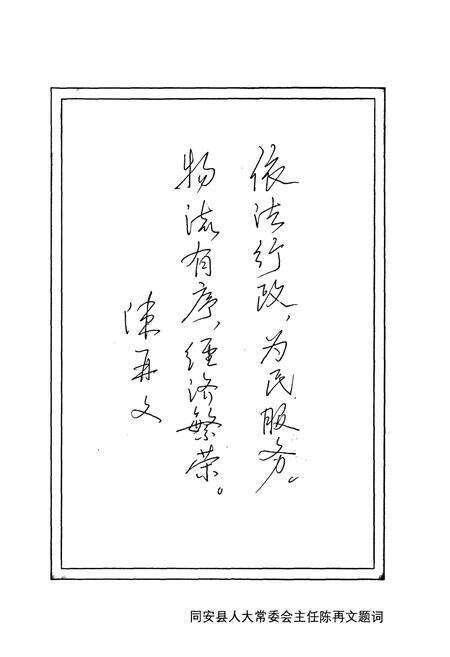 依法行政，为民服务。
物流有序，经济繁荣。
陈再文
同安县人大常委会主任陈再文题词